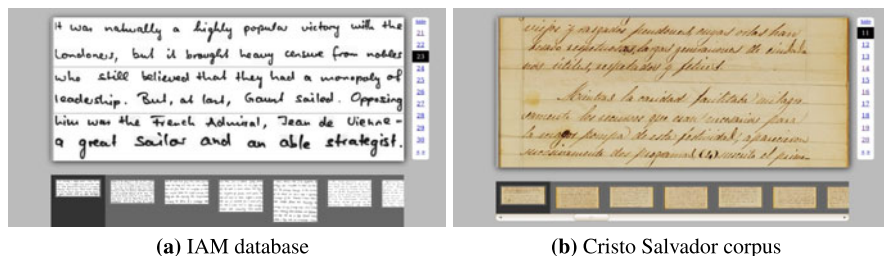 It was naturally a highly popular victory with the
Londoners, but it brought heavy censure from nobles
who still believed that they had a monopoly of
leadership. But, at last, Gaunt sailed. Opposing
him was the French Admiral, Jean de Vienne -
a great sailor and an able strategist.
21
22
23
24
25
26
27
28
29
30
(a) IAM database
viejos y rasgados pendones, cuyas orlas han
nos útiles, respetados y felices.
Mientras la caridad facilitaba milagro
samente los recursos que eran necesarios para
la mayor pompa de esta festividad, aparecieron
sucesivamente dos programas, (4) mento el prime-
11
12
13
14
15
16
17
18
19
20
(b) Cristo Salvador corpus